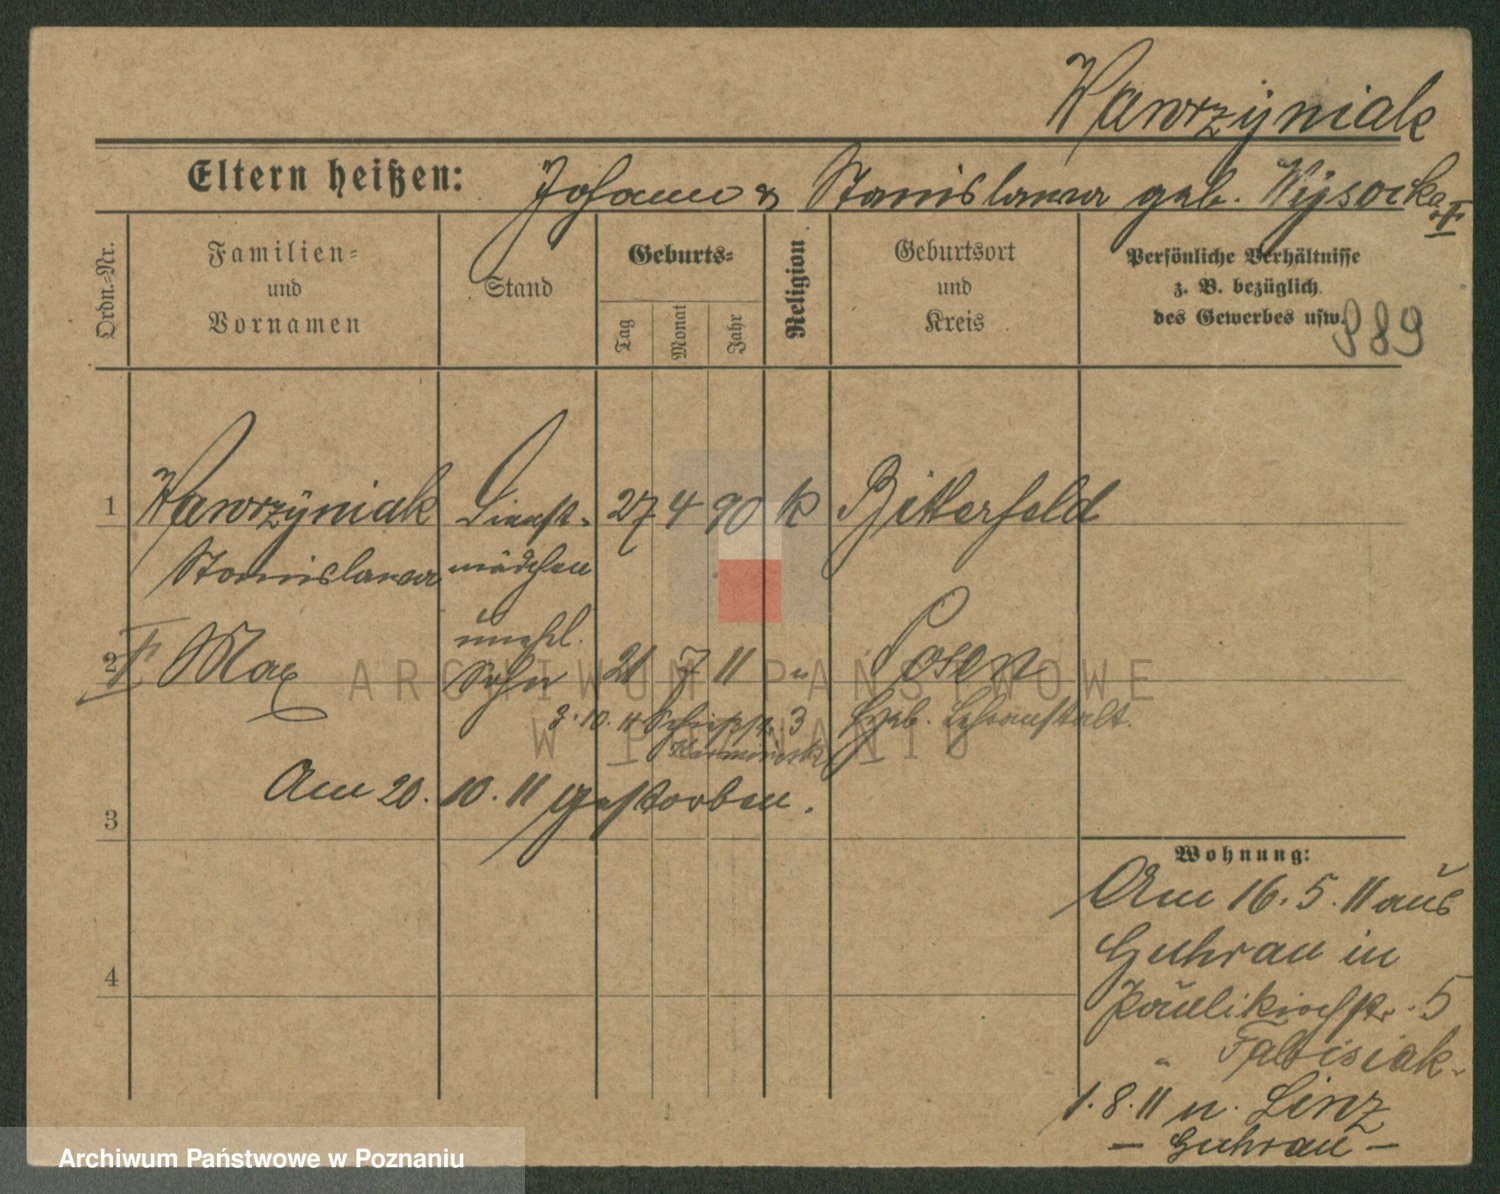 Wawrzyniak
Eltern heißen: Johann & Stanislawa geb. Wysocka
Ordn.-Nr.
Familien-
und
Vornamen
Stand
Geburts-
Tag
Monat
Jahr
Religion
Geburtsort
und
Kreis
Persönliche Verhältnisse
z. B. bezüglich
des Gewerbes usw.
989
1 Wawrzyniak Dienst- 27 4 90 k Bitterfeld
Stanislawa mädchen
unehl.
2 Max Sohn 21 7 11 " Posen
3.10.11 3 Heb. Lehranstalt.
Am 20.10.11 gestorben.
3
4
Wohnung:
Am 16.5.11 aus
Guhrau in
Paulikirchstr. 5
" Fabisiak.
1.8.11 n. Linz
– Guhrau –
ARCHIWUM PAŃSTWOWE
W POZNANIU
Archiwum Państwowe w Poznaniu